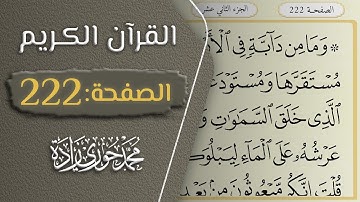 القرآن الكريم
الصفحة: 222
محمد حوري زاده
الصفحـة 222
الجزء الثاني عشر
۞ وَمَا مِن دَآبَّةٍ فِي ٱلْأَ
مُسْتَقَرَّهَا وَمُسْتَوْدَعَ
ٱلَّذِى خَلَقَ ٱلسَّمَٰوَٰتِ وَ
عَرْشُهُۥ عَلَى ٱلْمَآءِ لِيَبْلُوَكُ
قُلْتَ إِنَّكُم مَّبْعُوثُونَ مِنۢ بَعْدِ